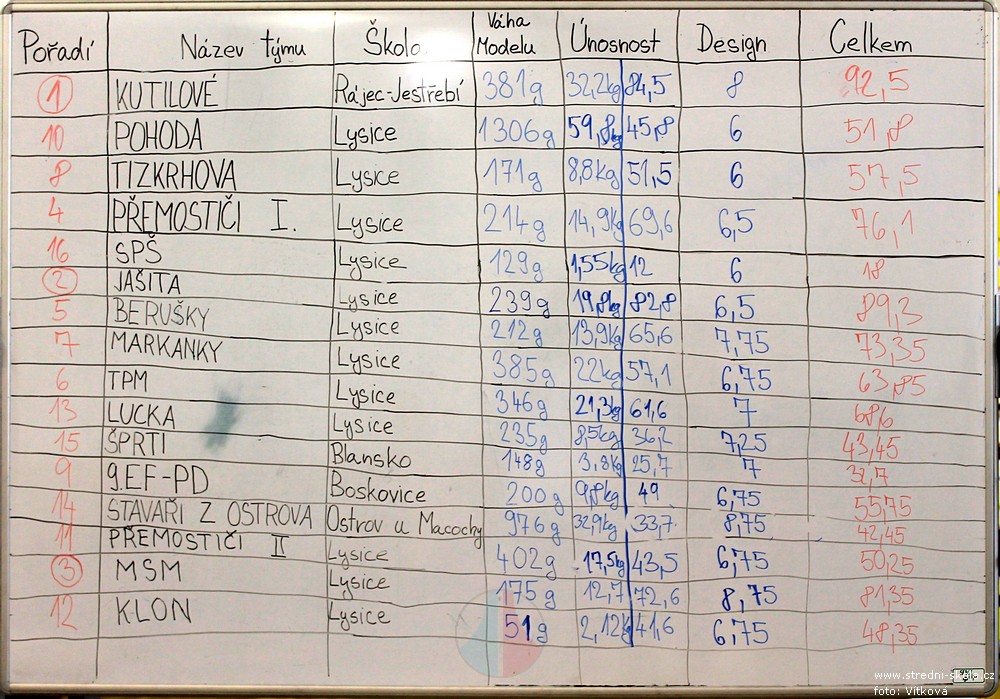 Pořadí Název týmu Škola Váha Modelu Únosnost Design Celkem
1 KUTILOVÉ Rájec-Jestřebí 381g 32,2kg 84,5 8 92,5
10 POHODA Lysice 1306g 59,8kg 45,8 6 51,8
8 TIZKRHOVA Lysice 171g 8,8kg 51,5 6 57,5
4 PŘEMOSTIČI I. Lysice 214g 14,9kg 69,6 6,5 76,1
16 SPŠ Lysice 129g 1,55kg 12 6 18
2 JAŠITA Lysice 239g 19,8kg 82,8 6,5 89,3
5 BERUŠKY Lysice 212g 13,9kg 65,6 7,75 73,35
7 MARKANKY Lysice 385g 22kg 57,1 6,75 63,85
6 TPM Lysice 346g 21,3kg 61,6 7 68,6
13 LUCKA Lysice 235g 8,5kg 36,2 7,25 43,45
15 ŠPRTI Blansko 148g 3,8kg 25,7 7 32,7
9 9.EF-PD Boskovice 200g 9,8kg 49 6,75 55,75
14 STAVAŘI Z OSTROVA Ostrov u Macochy 976g 32,9kg 33,7 8,75 42,45
11 PŘEMOSTIČI II Lysice 402g 17,5kg 43,5 6,75 50,25
3 MSM Lysice 175g 12,7 72,6 8,75 81,35
12 KLON Lysice 51g 2,12kg 41,6 6,75 48,35
www.stredni-skola.cz
foto: Vítková